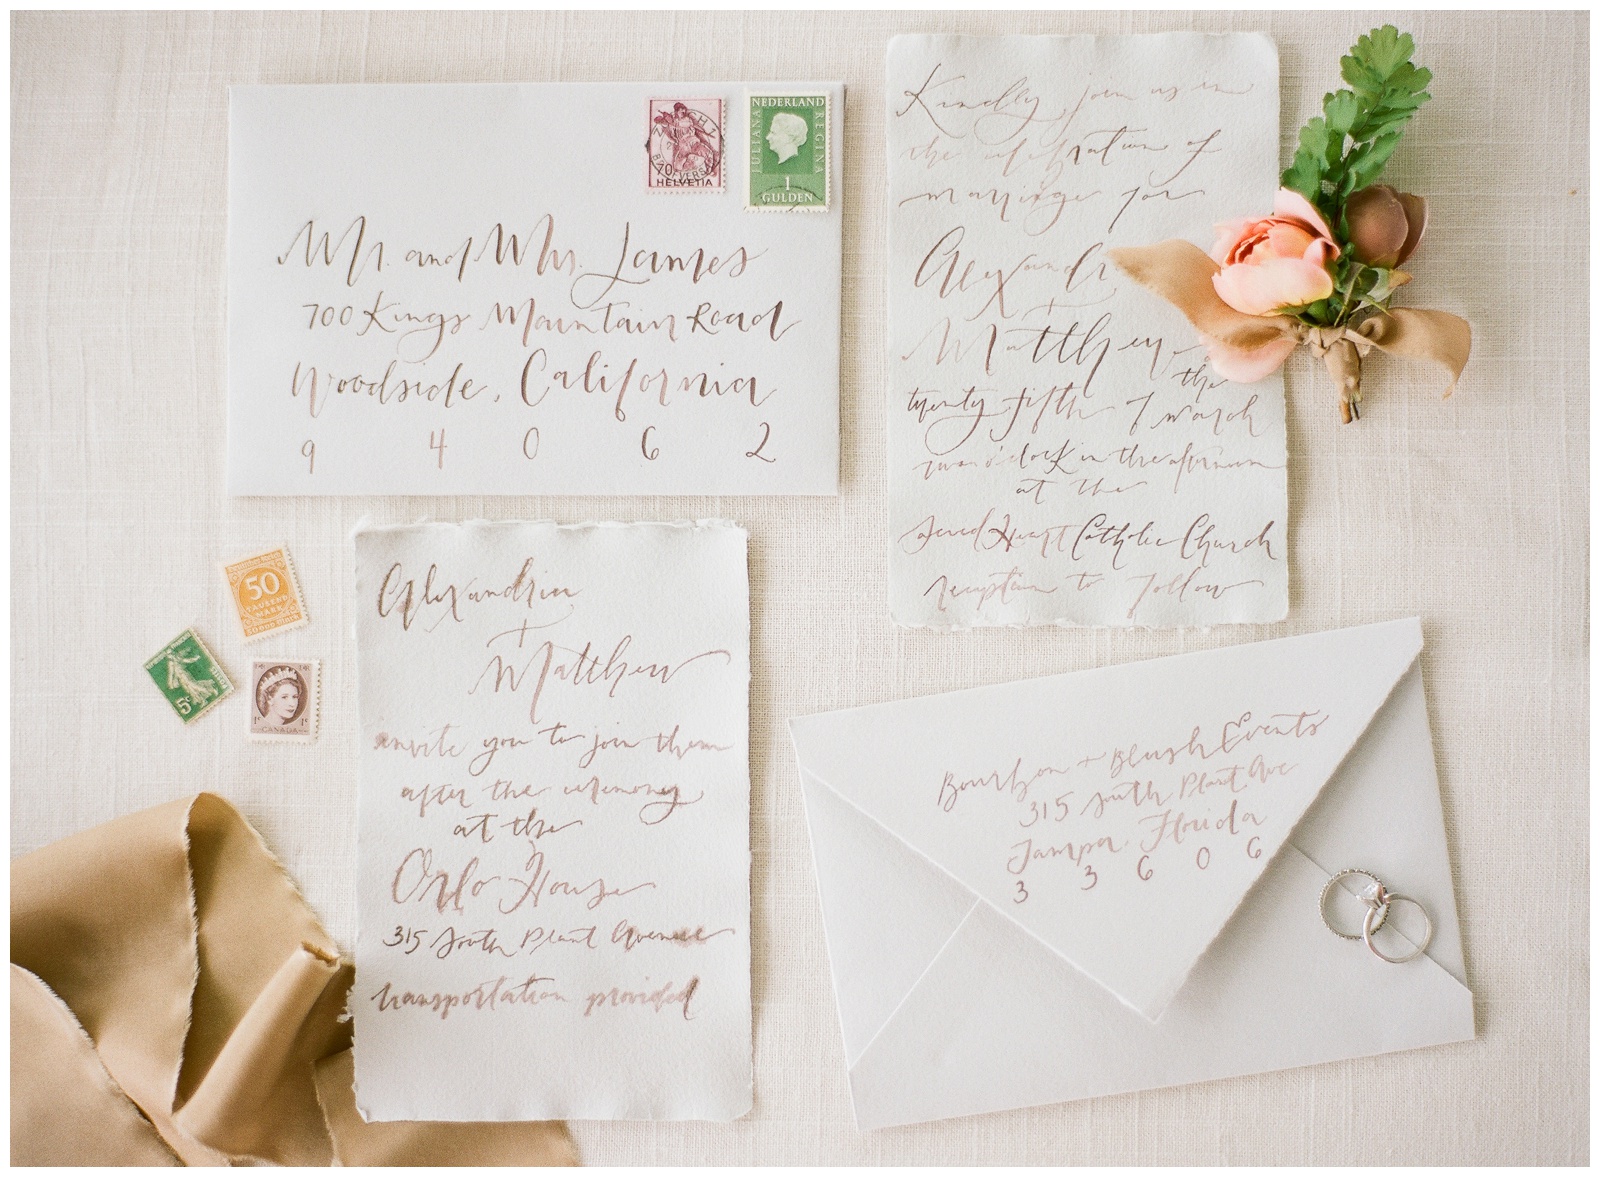 HELVETIA
70
NEDERLAND
JULIANA REGINA
1
GULDEN
Mr. and Mrs. James
700 Kings Mountain Road
Woodside, California
9 4 0 6 2
Kindly join us in
the celebration of
marriage for
Alexandr
+
Matthew
the
twenty fifth of march
two o'clock in the afternoon
at the
Sacred Heart Catholic Church
reception to follow
50
TAUSEND
MARK
5c
1c 1c
CANADA
Alexandria
+
Matthew
invite you to join them
after the ceremony
at the
Orlo House
315 South Plant Avenue
transportation provided
Bourbon + Blush Events
315 South Plant Ave
Tampa, Florida
3 3 6 0 6